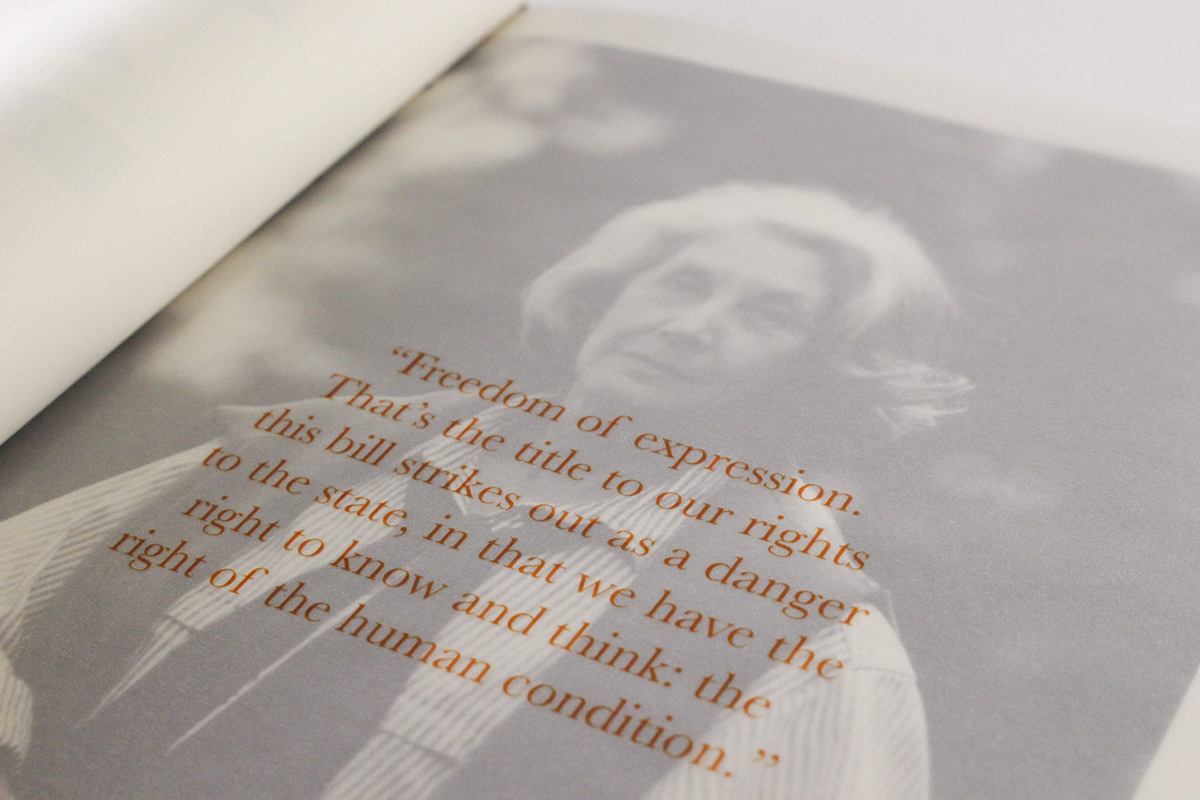 “Freedom of expression.
That’s the title to our rights
this bill strikes out as a danger
to the state, in that we have the
right to know and think: the
right of the human condition. ”